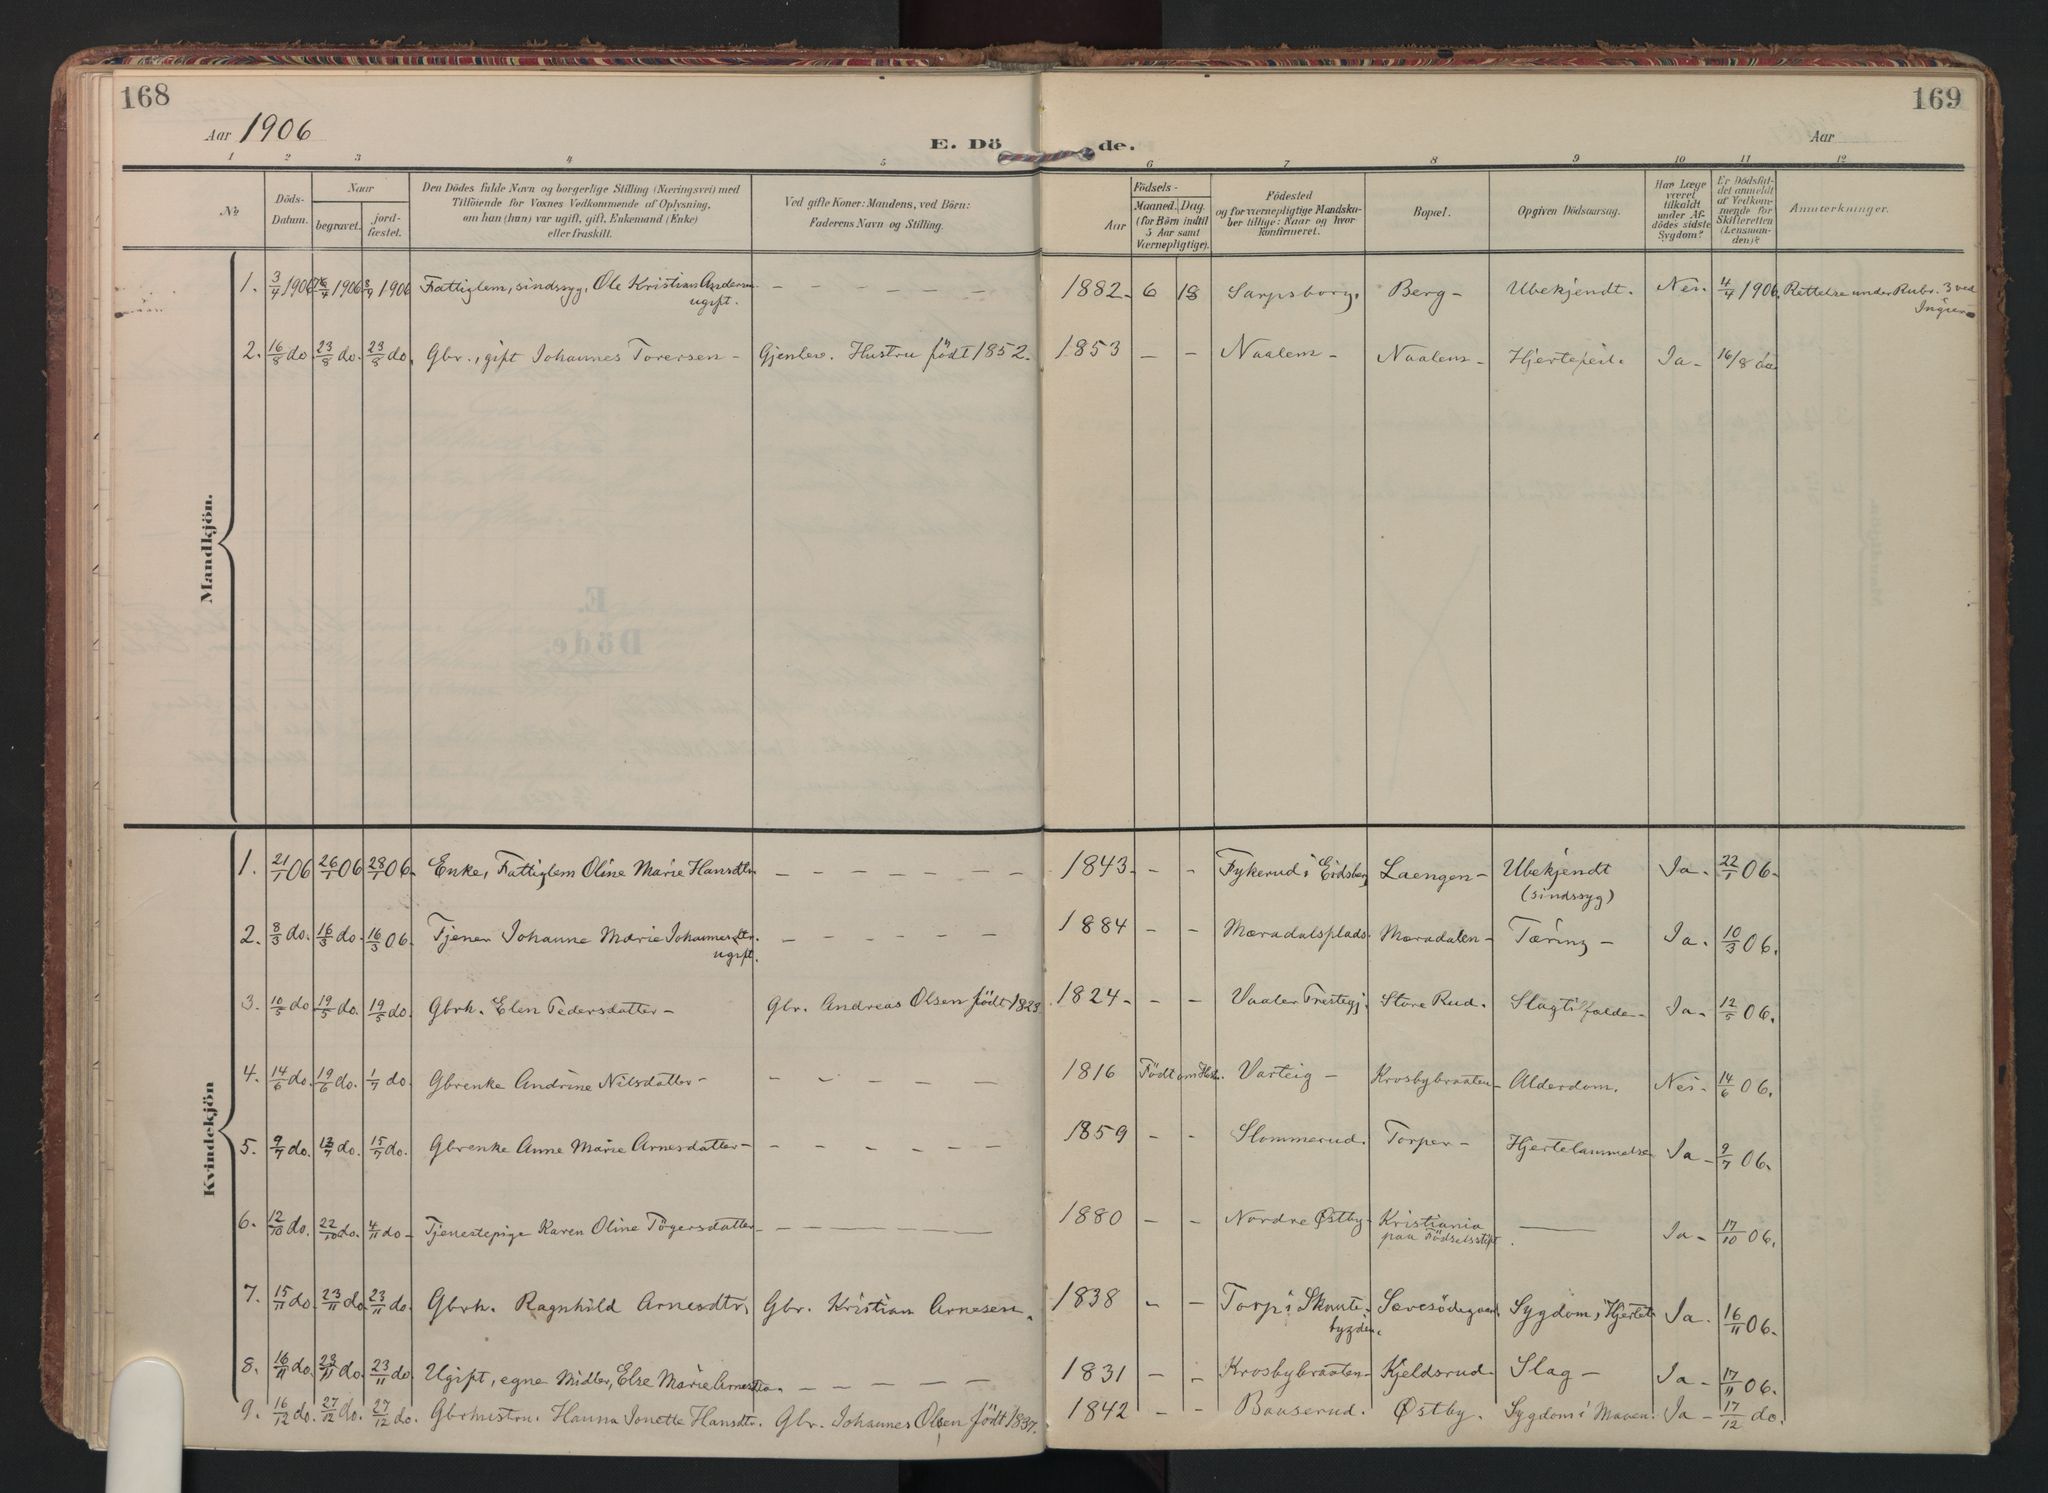 168
169
Aar 1906
E. Dö de.
Aar
1 2 3 4 5 6 7 8 9 10 11 12
No
Döds-Datum.
Naar
begravet.
jord-fæstet.
Den Dödes fulde Navn og borgerlige Stilling (Næringsvei) med
Tilföiende for Voxnes Vedkommende af Oplysning,
om han (hun) var ugift, gift, Enkemand (Enke)
eller fraskilt.
Ved gifte Koner: Mandens, ved Börn:
Faderens Navn og Stilling.
Födsels-
Aar
Maaned. Dag.
(for Börn indtil
5 Aar samt
Værnepligtige).
Födested
og for værnepligtige Mandska-
ber tillige: Naar og hvor
konfirmeret.
Bopæl.
Opgiven Dödsaarsag.
Har Læge
været
tilkaldt
under Af-
dödes sidste
Sygdom?
Er Dödsfal-
det anmeldt
af Vedkom-
mende for
Skifteretten
(Lensman-
den)?
Anmærkninger.
Mandkjön.
1. 3/4 1906 1906 8/4 1906 Fattiglem, sindssyg, Ole Kristian Andersen – – – – – – 1882 – 6 18 Sarpsborg. Berg – Ubekjendt. Nei. 4/4 1906. Rettelse under Rubr. 3 ved
ugift. Ingier
2. 16/8 do. 23/8 do. 23/8 do. Gbr., gift Johannes Torersen – Gjenlev. Hustru född 1852. 1853 – – Naalem – Naalem – Hjertefeil. Ja – 16/8 do
Kvindekjön
1. 21/1 06 26/1 06 28/1 06. Enke, Fattiglem Oline Marie Hansdtr. – – – – – – 1843 – – – Fykerud i Eidsberg Laengen – Ubekjendt Ja – 22/1 06 –
(sindssyg)
2. 8/3 do. 16/3 do. 16/3 06. Tjener Johanne Marie Johannesdtr. – – – – – – 1884 – – Mæradalsplads. Mæradalen – Tæring – Ja. 10/3 06.
ugift.
3. 10/5 do 19/5 do. 19/5 do. Gbrk. Elen Pedersdatter – Gbr. Andreas Olsen född 1823 1824 – – – Vaaler Prestegj. Store Rud. Slagtilfælde – Ja – 12/5 06.
4. 14/6 do. 19/6 do. 1/7 do. Gbrenke Andrine Nilsdatter – – – – – – 1816 Född om Høsten. Varteig – Krosbybraaten – Alderdom. Nei – 14/6 06.
5. 9/7 do. 13/7 do. 15/7 do. Gbrenke Anne Marie Arnesdatter – – – – – – 1859 – – Slommerud. Torper – Hjertelammelse Ja – 9/7 06.
6. 12/10 do. 22/10 do. 4/11 do – Tjenestepige Karen Oline Tögersdatter – – – – – – 1880 – – Nordre Østby – Kristiania – Ja – 17/10 06.
paa Födselsstift.
7. 15/11 do. 23/11 do. 23/11 do. Gbrk. Ragnhild Arnesdtr. Gbr. Kristian Arnesen. 1838 – – Torp i Skaute- Sæves­ödegaard. Sygdom i Hjertet Ja – 16/11 06.
bygden.
8. 16/11 do. 23/11 do. 23/11 do. Ugift, egne Midler, Else Marie Arnesdtr. – – – – – – 1831 – – Krosbybraaten – Kjeldsrud. Slag – Ja – 17/11 06.
9. 16/12 do. 27/12 do. 27/12 do. Gbrhustru. Hanna Jonette Hansdtr. Gbr. Johannes Olsen född 1837. 1842 – – Bauserud. Østby. Sygdom i Maven. Ja – 17/12 do.